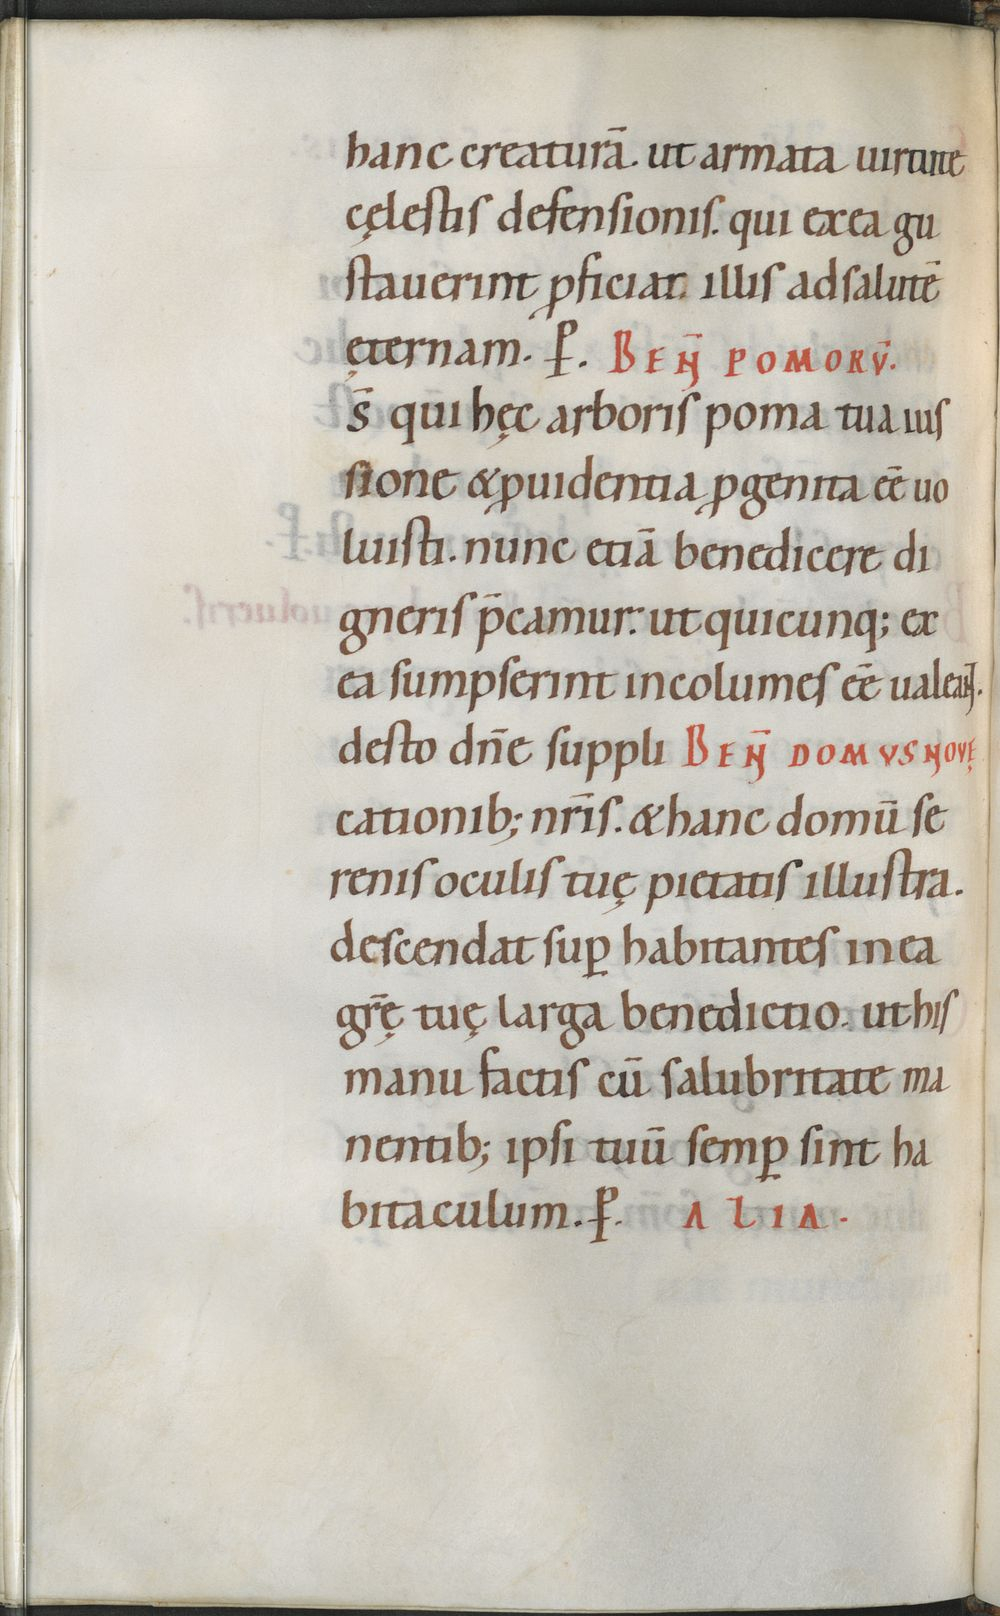 hanc creaturā. ut armata uirtute
cęlestis defensionis. qui ex ea gu
stauerint ꝓficiat illis ad salutē
ęternam. P̱. BEN̄ POMORV̄.
s̄ qui hęc arboris poma tua ius
sione & ꝓuidentia ꝓgenita eē uo
luisti. nunc etiā benedicere di
gneris p̄camur. ut quicunq; ex
ea sumpserint incolumes eē ualeant.
desto dn̄e suppli BEN̄ DOMVS NOVĘ
cationib; nr̄is. & hanc domū se
renis oculis tuę pietatis illustra.
descendat suꝑ habitantes in ea
gr̄ę tuę larga benedictio. ut his
manu factis cū salubritate ma
nentib; ipsi tuū semꝑ sint ha
bitaculum. P̱. ALIA.